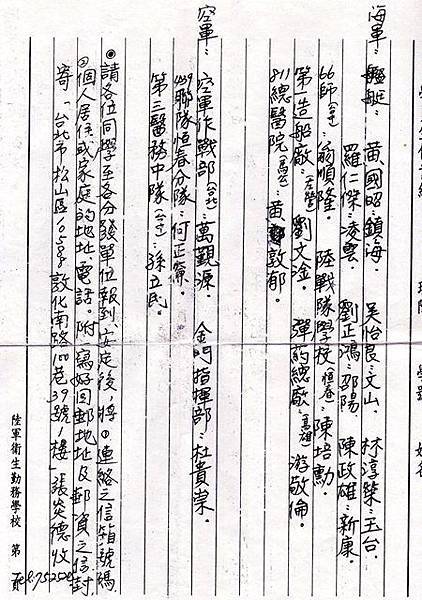 海軍：艦艇：黃國昭：鎮海。 吳怡良：文山。 林淳榮：玉台。
羅仁傑：凌雲。 劉正鴻：邵陽。 陳政雄：新康。
66師：翁順隆。 陸戰隊學校（恒春）：陳培勳。
第一造船廠（左營）：劉文金。 彈葯總廠（高雄）：游敬倫。
811總醫院（馬公）：黃敦郁。
空軍：空軍作戰部（台北）：萬觀源。 金門指揮部：杜貴崇。
439聯隊恒春分隊：何正
第三醫務中隊：孫立民。
◉請各位同學至各分發單位報到、安定後，將①連絡之信箱號碼，
②個人居住或家庭的地址、電話。附一寫好回郵地址及郵資之信封
寄「台北市松山區10588敦化南路100巷39號1樓」張炎德收
Tel:
陸軍衛生勤務學校 第 頁